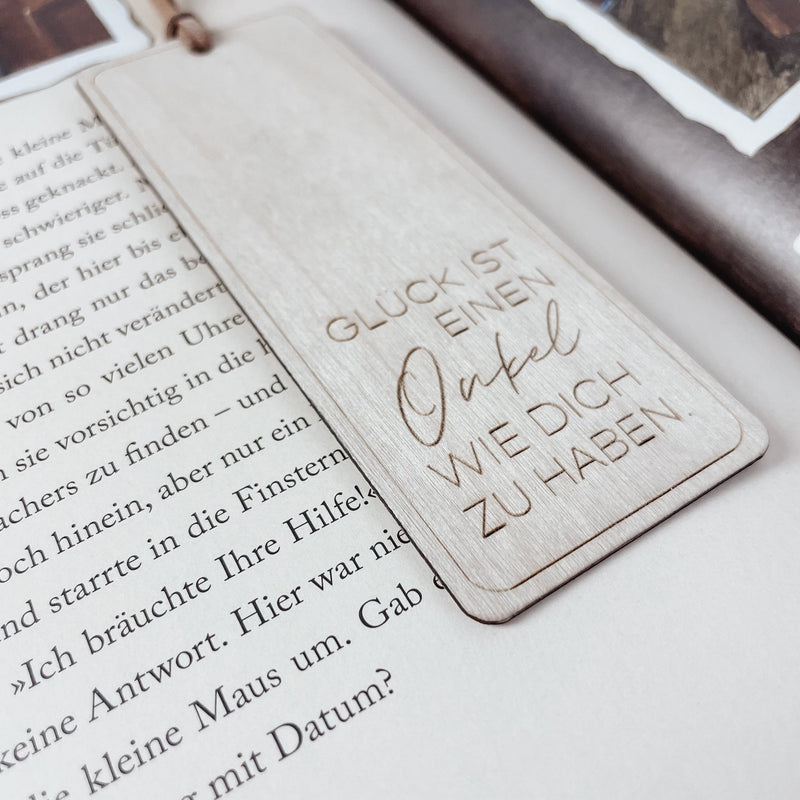 kleine M
auf die Tü
ss geknackt.
schwieriger.
sprang sie schli
n, der hier bis e
drang nur das b
sich nicht verändert
von so vielen Uhre
n sie vorsichtig in die
achers zu finden – und
och hinein, aber nur ein
nd starrte in die Finstern
»Ich bräuchte Ihre Hilfe!«
keine Antwort. Hier war nie
die kleine Maus um. Gab e
mit Datum?
GLÜCK IST
EINEN
Onkel
WIE DICH
ZU HABEN.